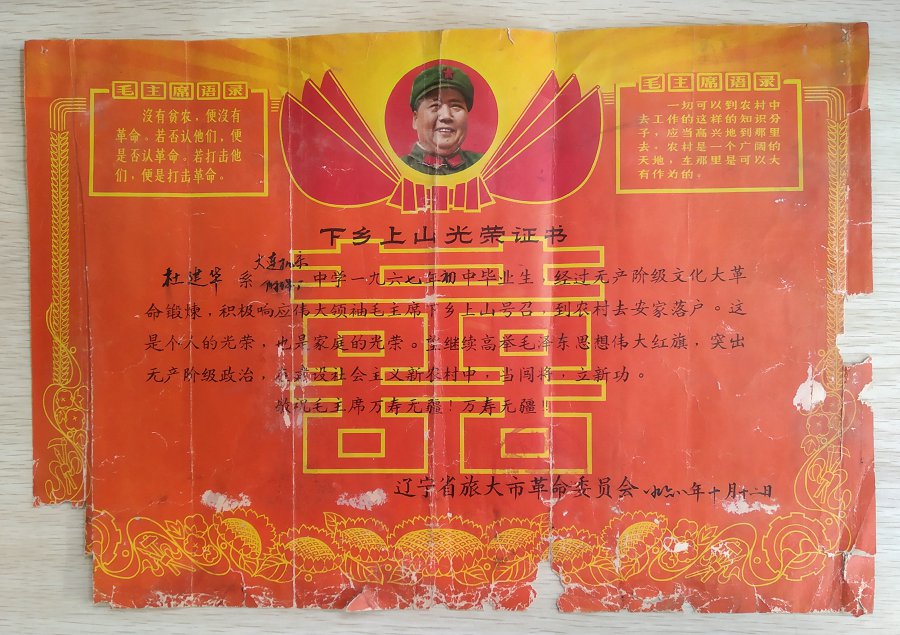 毛主席语录
沒有贫农，便沒有
革命。若否认他们，便
是否认革命。若打击他
们，便是打击革命。
毛主席语录
一切可以到农村中
去工作的这样的知识分
子，应当高兴地到那里
去。农村是一个广阔的
天地，在那里是可以大
有作为的。
下乡上山光荣证书
杜建华 系 大连 中学一九六七年初中毕业生，经过无产阶级文化大革
命锻煉，积极响应伟大领袖毛主席下乡上山号召，到农村去安家落户。这
是个人的光荣，也是家庭的光荣。望继续高举毛泽东思想伟大红旗，突出
无产阶级政治，在建设社会主义新农村中，当闯将，立新功。
敬祝毛主席万寿无疆！万寿无疆！
囍
辽宁省旅大市革命委员会 一九六八年十月十二日